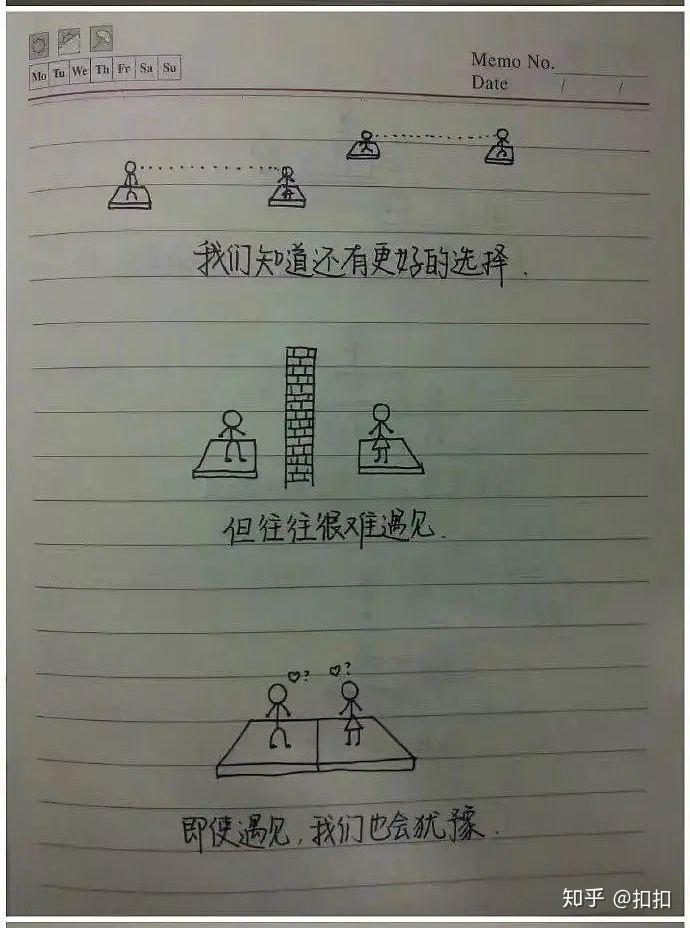 Memo No.
Mo Tu We Th Fr Sa Su
Date / /
我们知道还有更好的选择.
但往往很难遇见.
♡? ♡?
即使遇见,我们也会犹豫.
知乎 @扣扣